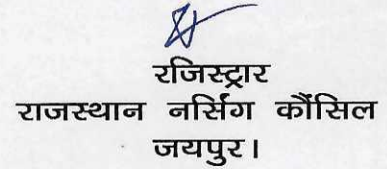 रजिस्ट्रार
राजस्थान नर्सिंग कौंसिल
जयपुर।